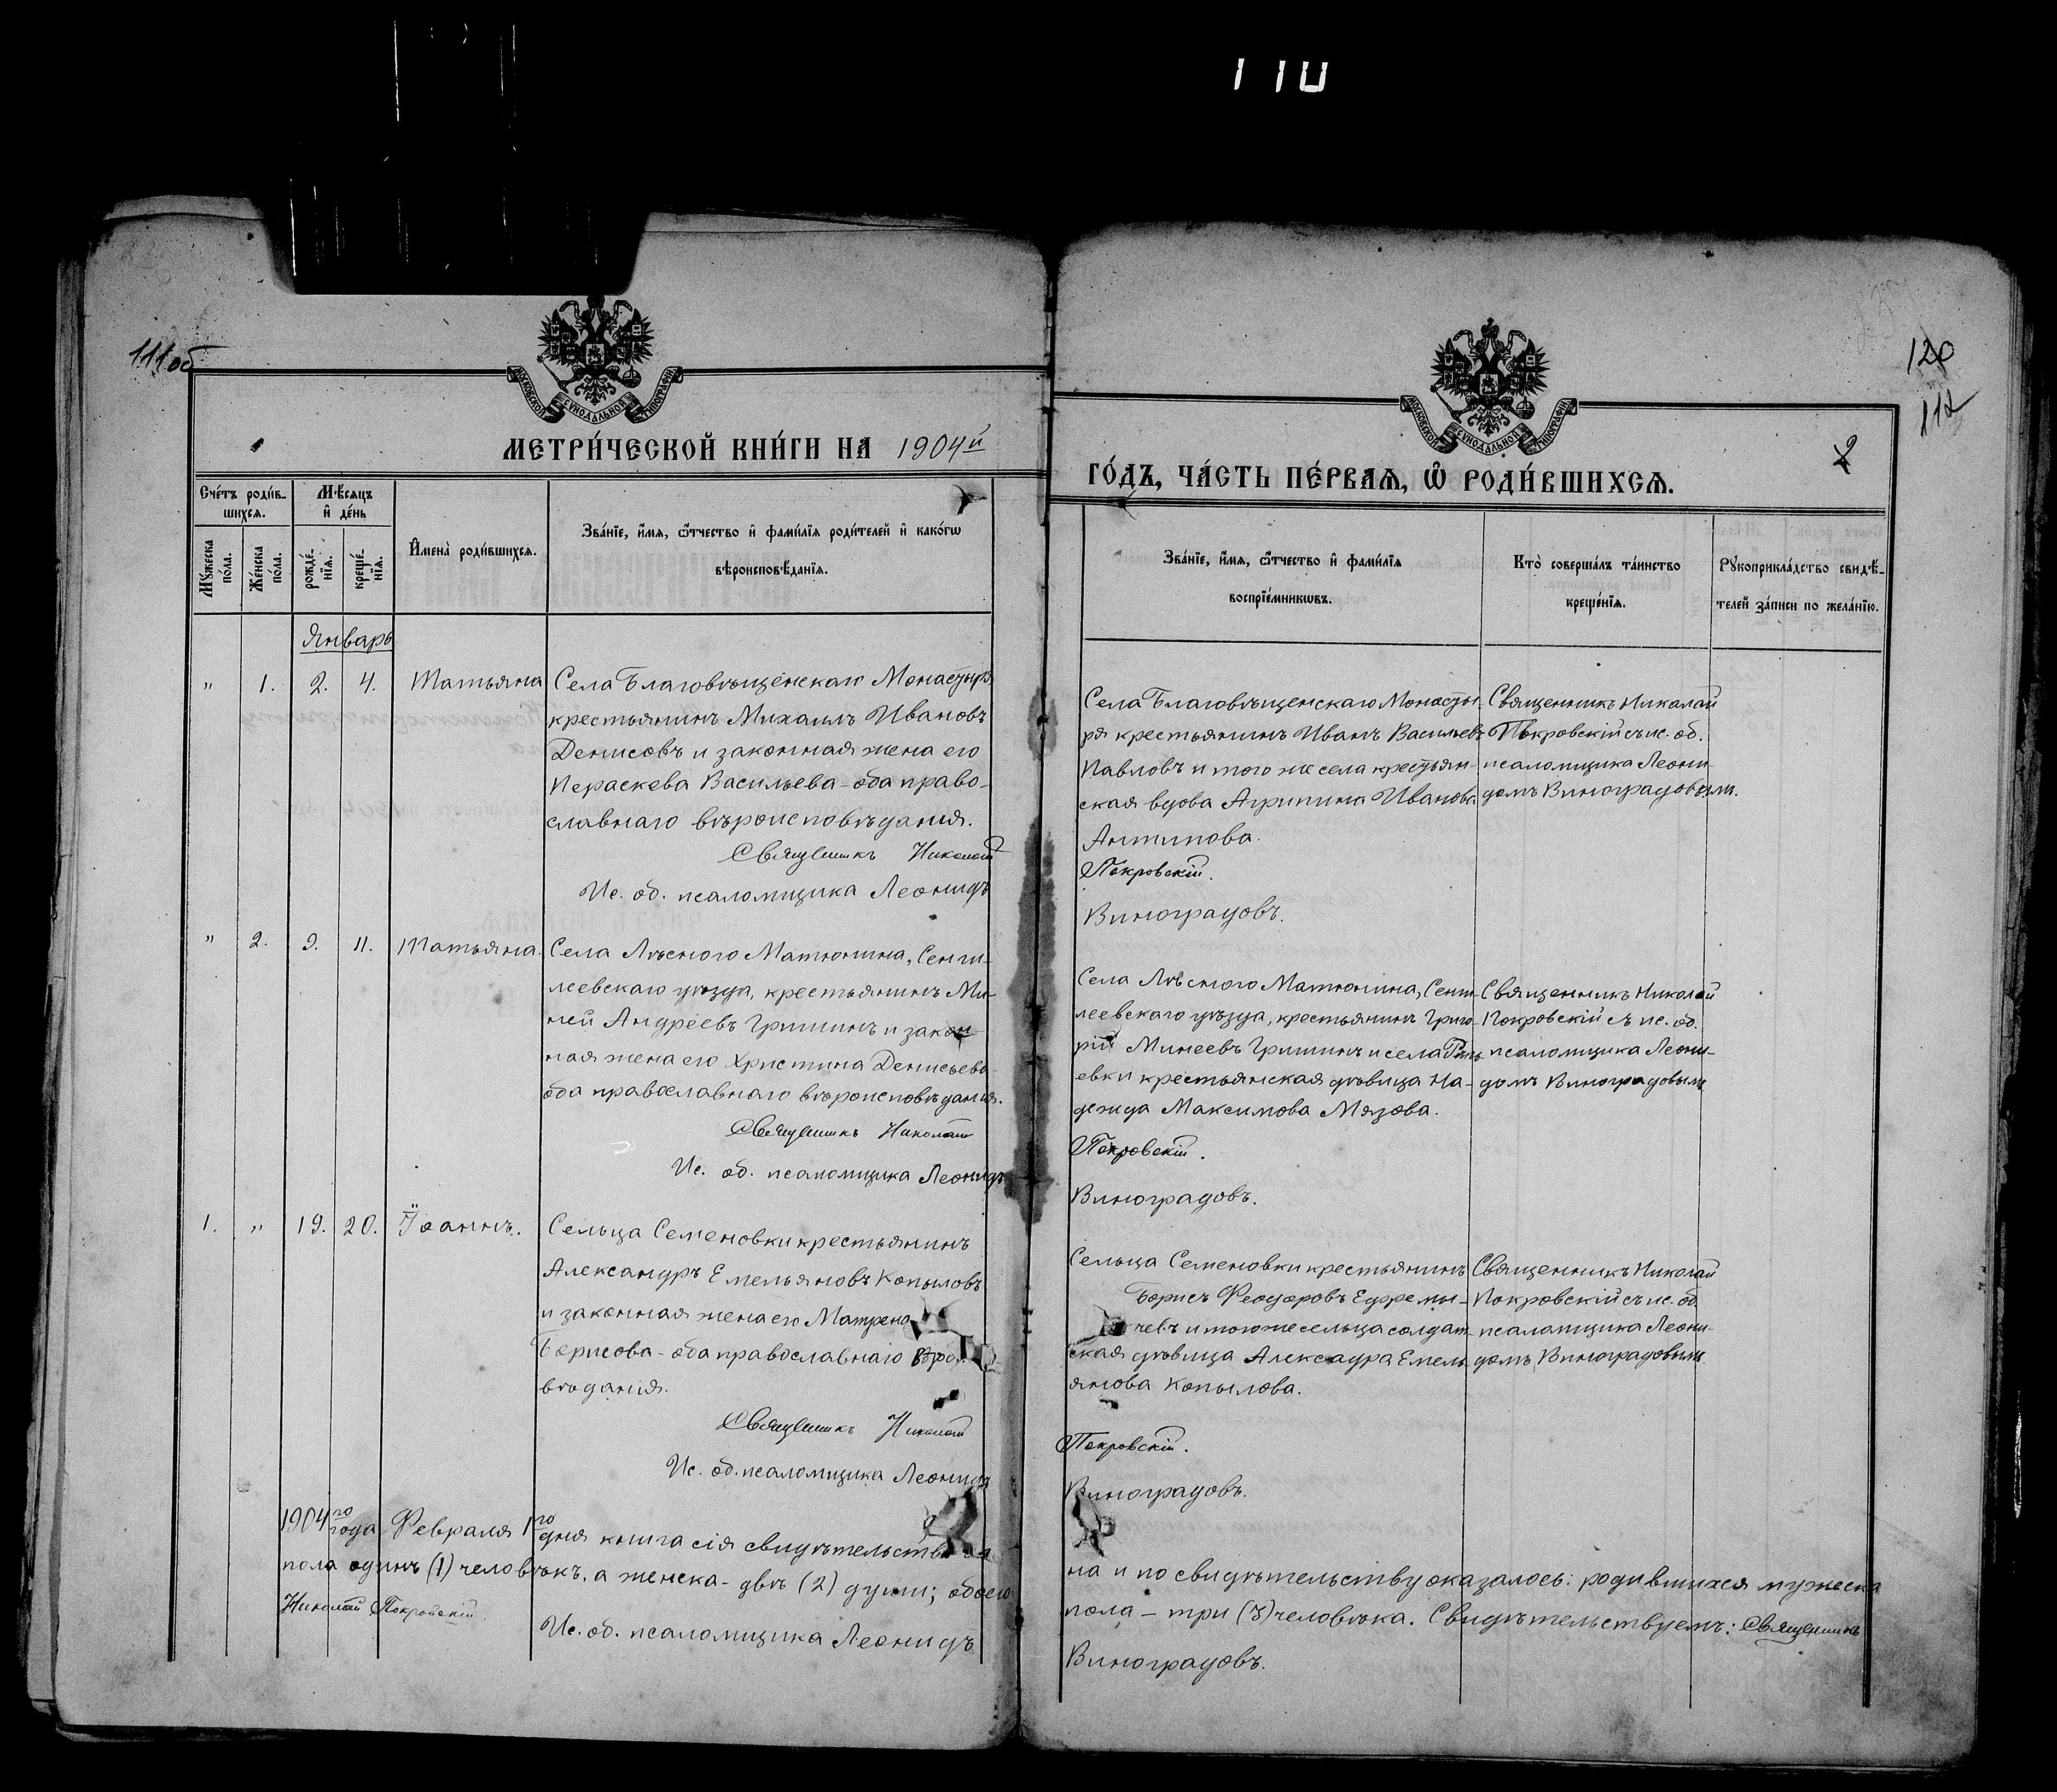 110
111об
120
112
2
МОСКОВСКОЙ СѴНОДАЛЬНОЙ ТИПОГРАФІИ
МОСКОВСКОЙ СѴНОДАЛЬНОЙ ТИПОГРАФІИ
МЕТРИ́ЧЕСКОЙ КНИ́ГИ НА 1904й
ГО́ДЪ, ЧА́СТЬ ПЕ́РВАѦ, Ѽ РОДИ́ВШИХСѦ.
Сче́тъ роди́в-
шихсѧ.
Мѣ́сѧцъ
и҆ де́нь
Мꙋ́жеска
по́ла.
Же́нска
по́ла.
рожде́-
нїѧ.
креще́-
нїѧ.
И҆мена̀ роди́вшихсѧ.
Зва́нїе, и҆́мѧ, ѻ҆́тчество и҆ фами́лїѧ роди́телей и҆ како́гѡ
вѣроисповѣ́данїѧ.
Зва́нїе, и҆́мѧ, ѻ҆́тчество и҆ фами́лїѧ
воспрїе́мникѡвъ.
Кто̀ соверша́лъ та́инство
креще́нїѧ.
Рꙋкоприкла́дство свидѣ́-
телей за́писи по жела́нїю.
Январь
" 1. 2. 4. Татьяна
Села Благовѣщенскаго Монастыря
крестьянинъ Михаилъ Ивановъ
Денисовъ и законная жена его
Пераскева Васильева - оба право-
славнаго вѣроисповѣданія.
Священникъ Николай
Ис. об. псаломщика Леонидъ
Села Благовѣщенскаго Монасты-
ря крестьянинъ Иванъ Васильевъ
Павловъ и того же села крестьян-
ская вдова Агрипина Иванова
Антипова.
Покровскій.
Виноградовъ.
Священникъ Николай
Покровскій съ ис. об.
псаломщика Леони-
домъ Виноградовымъ.
" 2. 9. 11. Татьяна.
Села Лѣсного Матюнина, Сенги-
леевскаго уѣзда, крестьянинъ Ми-
ней Андреевъ Гришинъ и закон-
ная жена его Христина Денисьева-
оба православнаго вѣроисповѣданія.
Священникъ Николай
Ис. об. псаломщика Леонидъ
Села Лѣсного Матюнина, Сенги-
леевскаго уѣзда, крестьянинъ Григо-
рій Минеевъ Гришинъ и села
евки крестьянская дѣвица На-
дежда Максимова Мязова.
Покровскій.
Виноградовъ.
Священникъ Николай
Покровскій съ ис. об.
псаломщика Леони-
домъ Виноградовымъ
1. " 19. 20. Іоаннъ.
Сельца Семеновки крестьянинъ
Александръ Емельяновъ Копыловъ
и законная жена его Матрена
Борисова - оба православнаго
вѣданія.
Священникъ Николай
Ис. об. псаломщика Леонидъ
Сельца Семеновки крестьянинъ
Борисъ Феодоровъ Ефремы-
чевъ и того же сельца солдат-
ская дѣвица Александра Емель-
янова Копылова.
Покровскій.
Виноградовъ.
Священникъ Николай
Покровскій съ ис. об.
псаломщика Леони-
домъ Виноградовымъ.
1904го года Февраля 1го дня книга сія свидѣтельствова-
на и по свидѣтельству оказалось: родившихся мужеска
пола одинъ (1) человѣкъ, а женска - двѣ (2) души; обоего
пола - три (3) человѣка. Свидѣтельствуемъ: Священникъ
Николай Покровскій.
Ис. об. псаломщика Леонидъ
Виноградовъ.